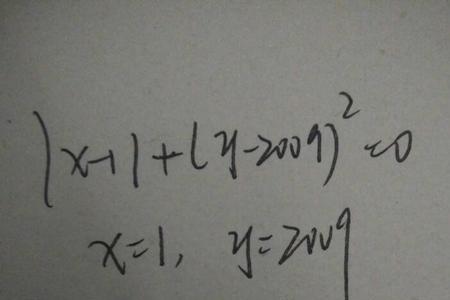 |x-1|+(y-2009)²=0
x=1, y=2009